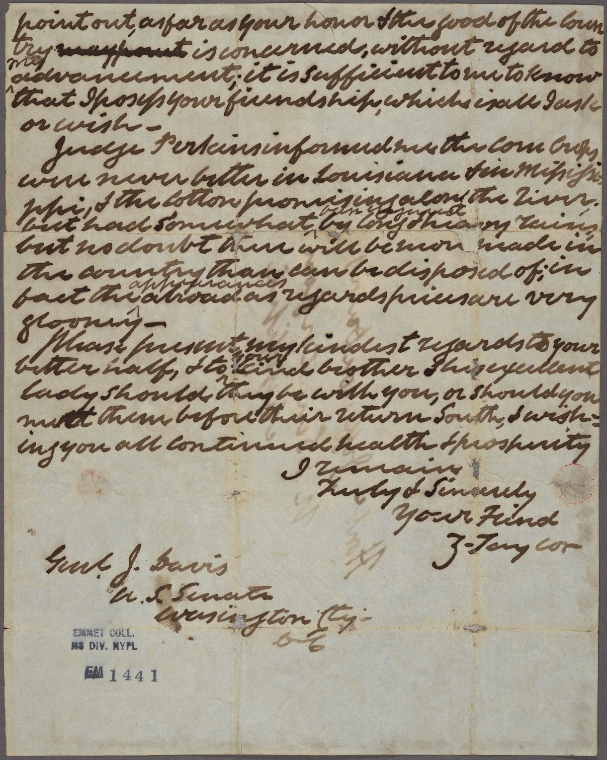 point out, as far as your honor & the good of the coun
try is concerned, without regard to
my
advancement; it is sufficient to me to know
that I posess your friendship, which is all I ask
or wish –
Judge Perkins informed me the corn crops
were never better in Louisiana & in Mississi-
ppi, & the cotton promising along the River,
but had somewhat by heavy rains
but no doubt there will be more made in
the country than can be disposed of; in
appearances
fact the abroad as regards prices are very
gloomy –
Please present my kindest regards to your
your
better half, & to kind brother & his excellent
lady should they be with you, or should you
meet them before their return South, & wish=
ing you all continued health & prosperity
I remain
Truly & Sincerely
Your Friend
Z-Taylor
Genl. J. Davis
U. S Senate
Wasington City-
DC
EMMET COLL.
MS DIV. NYPL
EM 1441